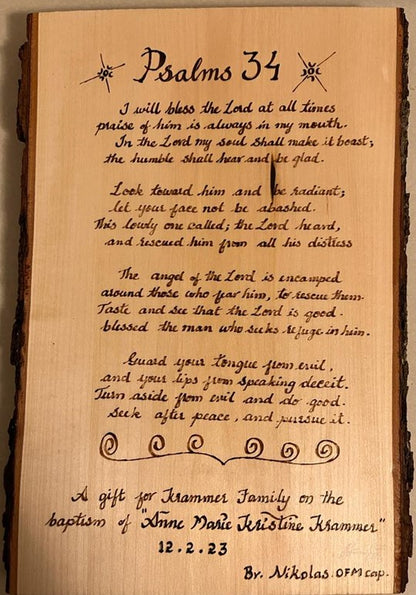 Psalms 34
I will bless the Lord at all times
praise of him is always in my mouth.
In the Lord my soul shall make it boast;
the humble shall hear and be glad.
Look toward him and be radiant;
let your face not be abashed.
This lowly one called; the Lord heard,
and rescued him from all his distress
The angel of the Lord is encamped
around those who fear him, to rescue them.
Taste and see that the Lord is good.
blessed the man who seeks refuge in him.
Guard your tongue from evil,
and your lips from speaking deceit.
Turn aside from evil and do good.
Seek after peace, and pursue it.
A gift for Krammer Family on the
baptism of "Anne Marie Kristine Krammer"
12.2.23
Br. Nikolas OFM cap.